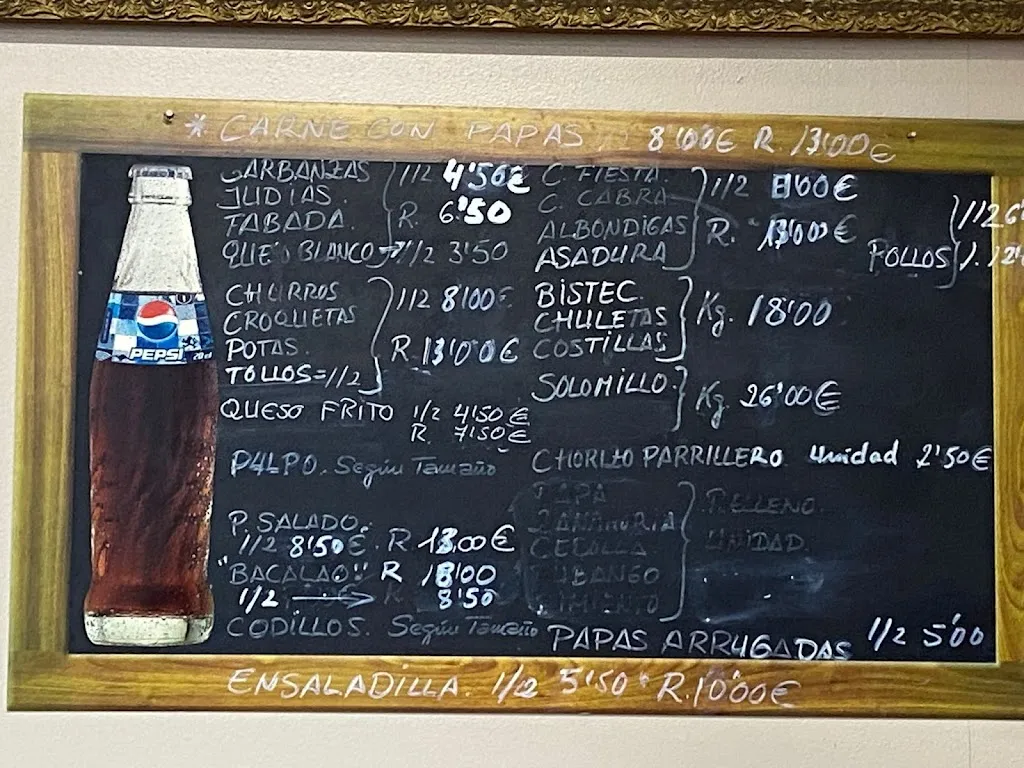 * CARNE CON PAPAS 8'00€ R 13'00€
GARBANZAS
JUDIAS
FABADA
1/2 4'50€
R. 6'50
QUESO BLANCO → 1/2 3'50
CHURROS
CROQUETAS
POTAS
TOLLOS = 1/2
1/2 8'00€
R 13'00€
QUESO FRITO 1/2 4'50€
R. 7'50€
PULPO. Según Tamaño
P. SALADO.
1/2 8'50€. R 13,00€
"BACALAO" R 18'00
1/2 → R 8'50
CODILLOS. Según Tamaño
PEPSI
20 cl
C. FIESTA.
C. CABRA
ALBONDIGAS
ASADURA
1/2 8'00€
R. 13'00€
POLLOS
1/2 6'
BISTEC.
CHULETAS
COSTILLAS
Kg. 18'00
SOLOMILLO.
Kg. 26'00€
CHORIZO PARRILLERO. Unidad 2'50€
PAPA
ZANAHORIA
CEBOLLA
BUBANGO
PIMIENTO
RELLENO
UNIDAD
PAPAS ARRUGADAS 1/2 5'00
ENSALADILLA. 1/2 5'50 · R. 10'00€